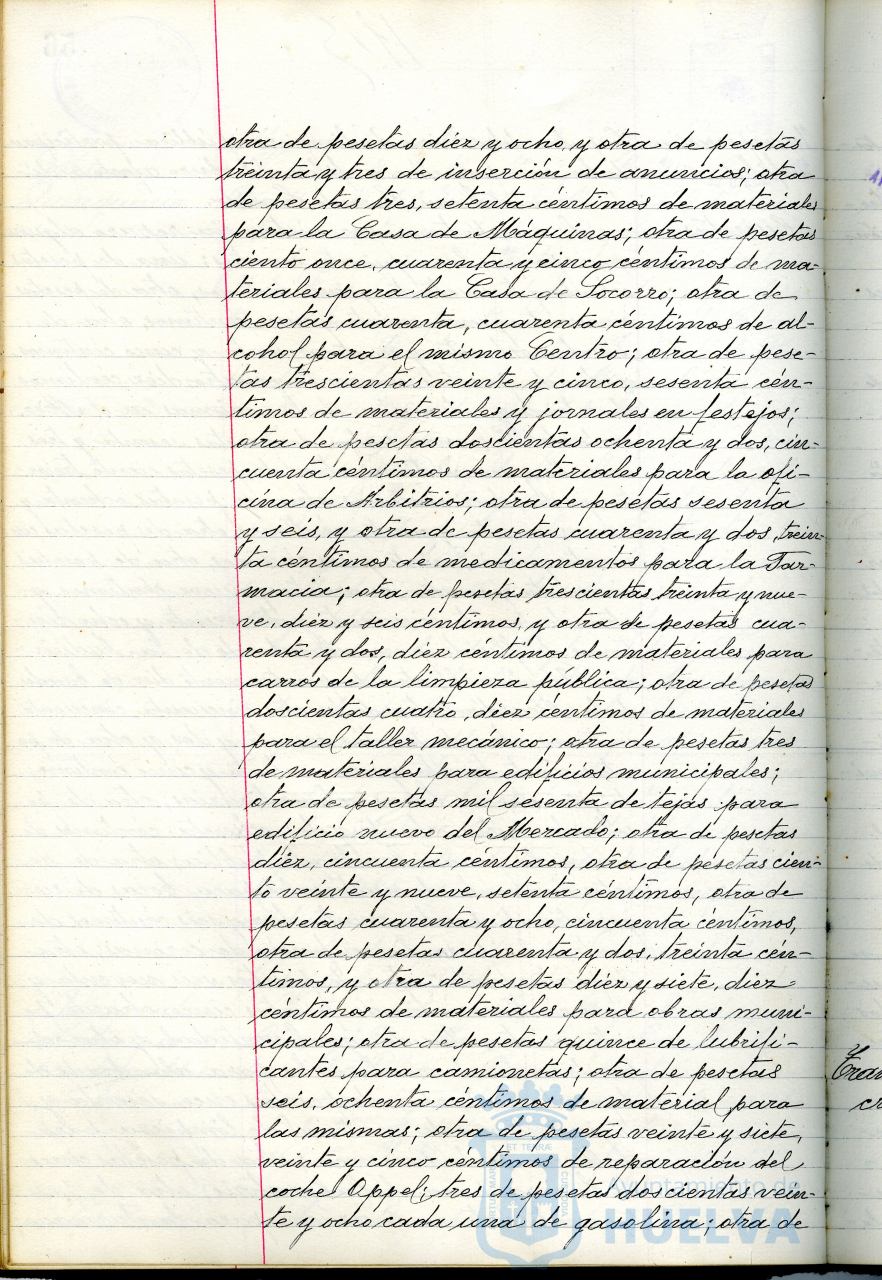 otra de pesetas diéz y ocho, y otra de pesetas
treinta y tres de inserción de anuncios; otra
de pesetas tres, setenta céntimos de materiales
para la Casa de Máquinas; otra de pesetas
ciento once, cuarenta y cinco céntimos de ma-
teriales para la Casa de Socorro; otra de
pesetas cuarenta, cuarenta céntimos de al-
cohol para el mismo Centro; otra de pese-
tas trescientas veinte y cinco, sesenta cén-
timos de materiales y jornales en festejos;
otra de pesetas doscientas ochenta y dos, cin-
cuenta céntimos de materiales para la ofi-
cina de Arbitrios; otra de pesetas sesenta
y seis, y otra de pesetas cuarenta y dos, trein-
ta céntimos de medicamentos para la Far-
macia; otra de pesetas trescientas treinta y nue-
ve, diéz y seis céntimos, y otra de pesetas cua-
renta y dos, diéz céntimos de materiales para
carros de la limpieza pública; otra de pesetas
doscientas cuatro, diéz céntimos de materiales
para el taller mecánico; otra de pesetas tres
de materiales para edificios municipales;
otra de pesetas mil sesenta de tejas para
edificio nuevo del Mercado; otra de pesetas
diéz, cincuenta céntimos, otra de pesetas cien-
to veinte y nueve, setenta céntimos, otra de
pesetas cuarenta y ocho, cincuenta céntimos,
otra de pesetas cuarenta y dos, treinta cén-
timos, y otra de pesetas diéz y siete, diez
céntimos de materiales para obras muni-
cipales; otra de pesetas quince de lubrifi-
cantes para camionetas; otra de pesetas
seis, ochenta céntimos de material para
las mismas; otra de pesetas veinte y siete,
veinte y cinco céntimos de reparación del
coche Oppel; tres de pesetas doscientas vein-
te y ocho cada una de gasolina; otra de
Ayuntamiento de
HUELVA